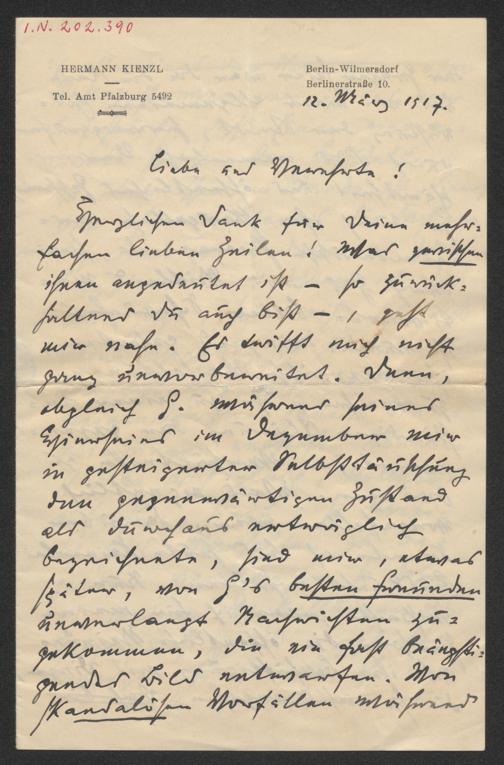 I.N. 202.390
HERMANN KIENZL
Tel. Amt Pfalzburg 5492
Berlin-Wilmersdorf
Berlinerstraße 10.
12. März 1917.
Liebe und Verehrte!
Herzlichen Dank für Deine mehr-
fachen lieben Zeilen! Was zwischen
ihnen angedeutet ist — so zurück-
haltend Du auch bist —, geht
mir nahe. Es trifft mich nicht
ganz unvorbereitet. Denn,
obgleich G. während seines
Hierseins im Dezember mir
in gesteigerter Selbsttäuschung
den gegenwärtigen Zustand
als durchaus erträglich
bezeichnete, sind mir, etwas
später, von G's besten Freunden
unverlangt Nachrichten zu-
gekommen, die ein fast beängsti-
gendes Bild entwarfen. Von
skandalösen Vorfällen während